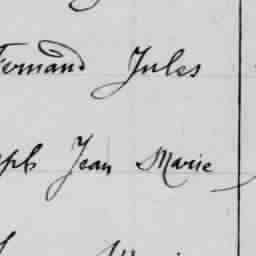 Fernand Jules
Jean Marie